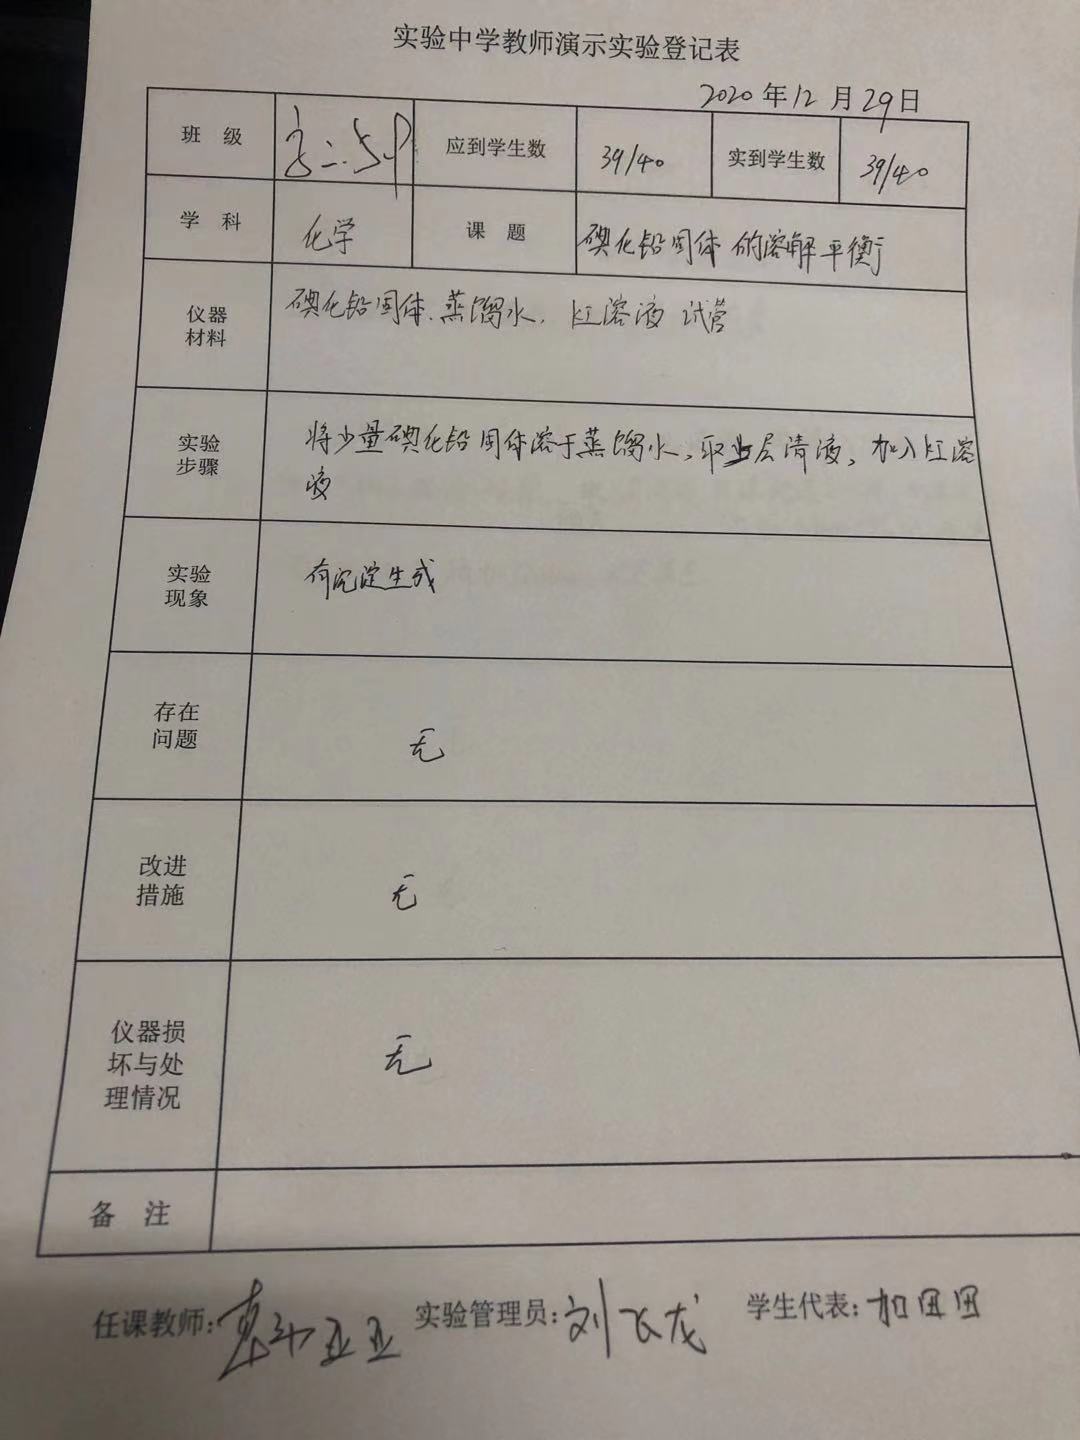 实验中学教师演示实验登记表
2020年12月29日
班 级 应到学生数 39/40 实到学生数 39/40
学 科 化学 课 题 碘化铅固体的溶解平衡
仪器
材料
碘化铅固体、蒸馏水、KI溶液 试管
实验
步骤
将少量碘化铅固体溶于蒸馏水,取上层清液,加入KI溶
液
实验
现象
有沉淀生成
存在
问题
无
改进
措施
无
仪器损
坏与处
理情况
无
备 注
任课教师: 实验管理员:刘飞龙 学生代表:加田田